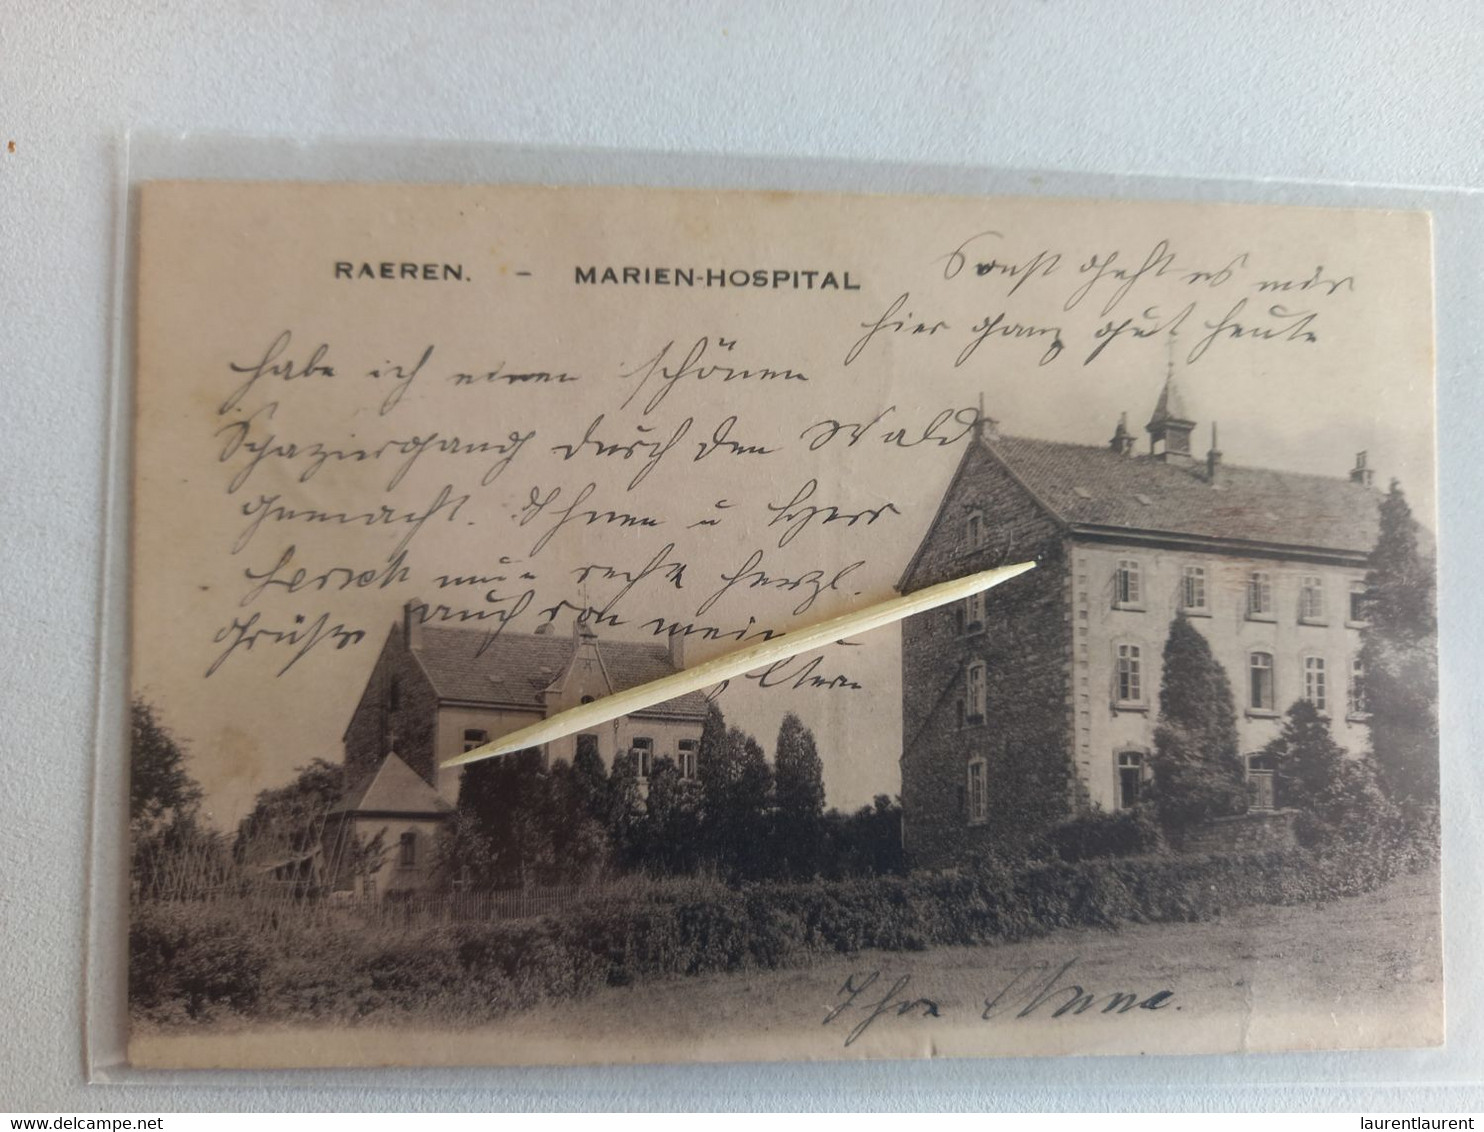 RAEREN. - MARIEN-HOSPITAL
Sonst geht es mir
hier ganz gut heute
habe ich einen schönen
Spaziergang durch den Wald
gemacht. Ihnen u Herr
nun recht herzl.
Grüße auch von meinen
Eltern
Ihre Anna.
laurentlaurent